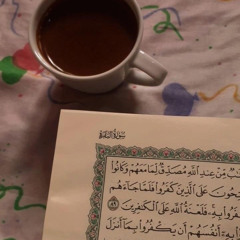 سُورَةُ البَقَرَةِ
كِتَٰبٌ مِّنْ عِندِ ٱللَّهِ مُصَدِّقٌ لِّمَا مَعَهُمْ وَكَانُوا۟
يَسْتَفْتِحُونَ عَلَى ٱلَّذِينَ كَفَرُوا۟ فَلَمَّا جَآءَهُم
كَفَرُوا۟ بِهِۦ فَلَعْنَةُ ٱللَّهِ عَلَى ٱلْكَٰفِرِينَ ٨٩
بِهِۦٓ أَنفُسَهُمْ أَن يَكْفُرُوا۟ بِمَآ أَنزَلَ